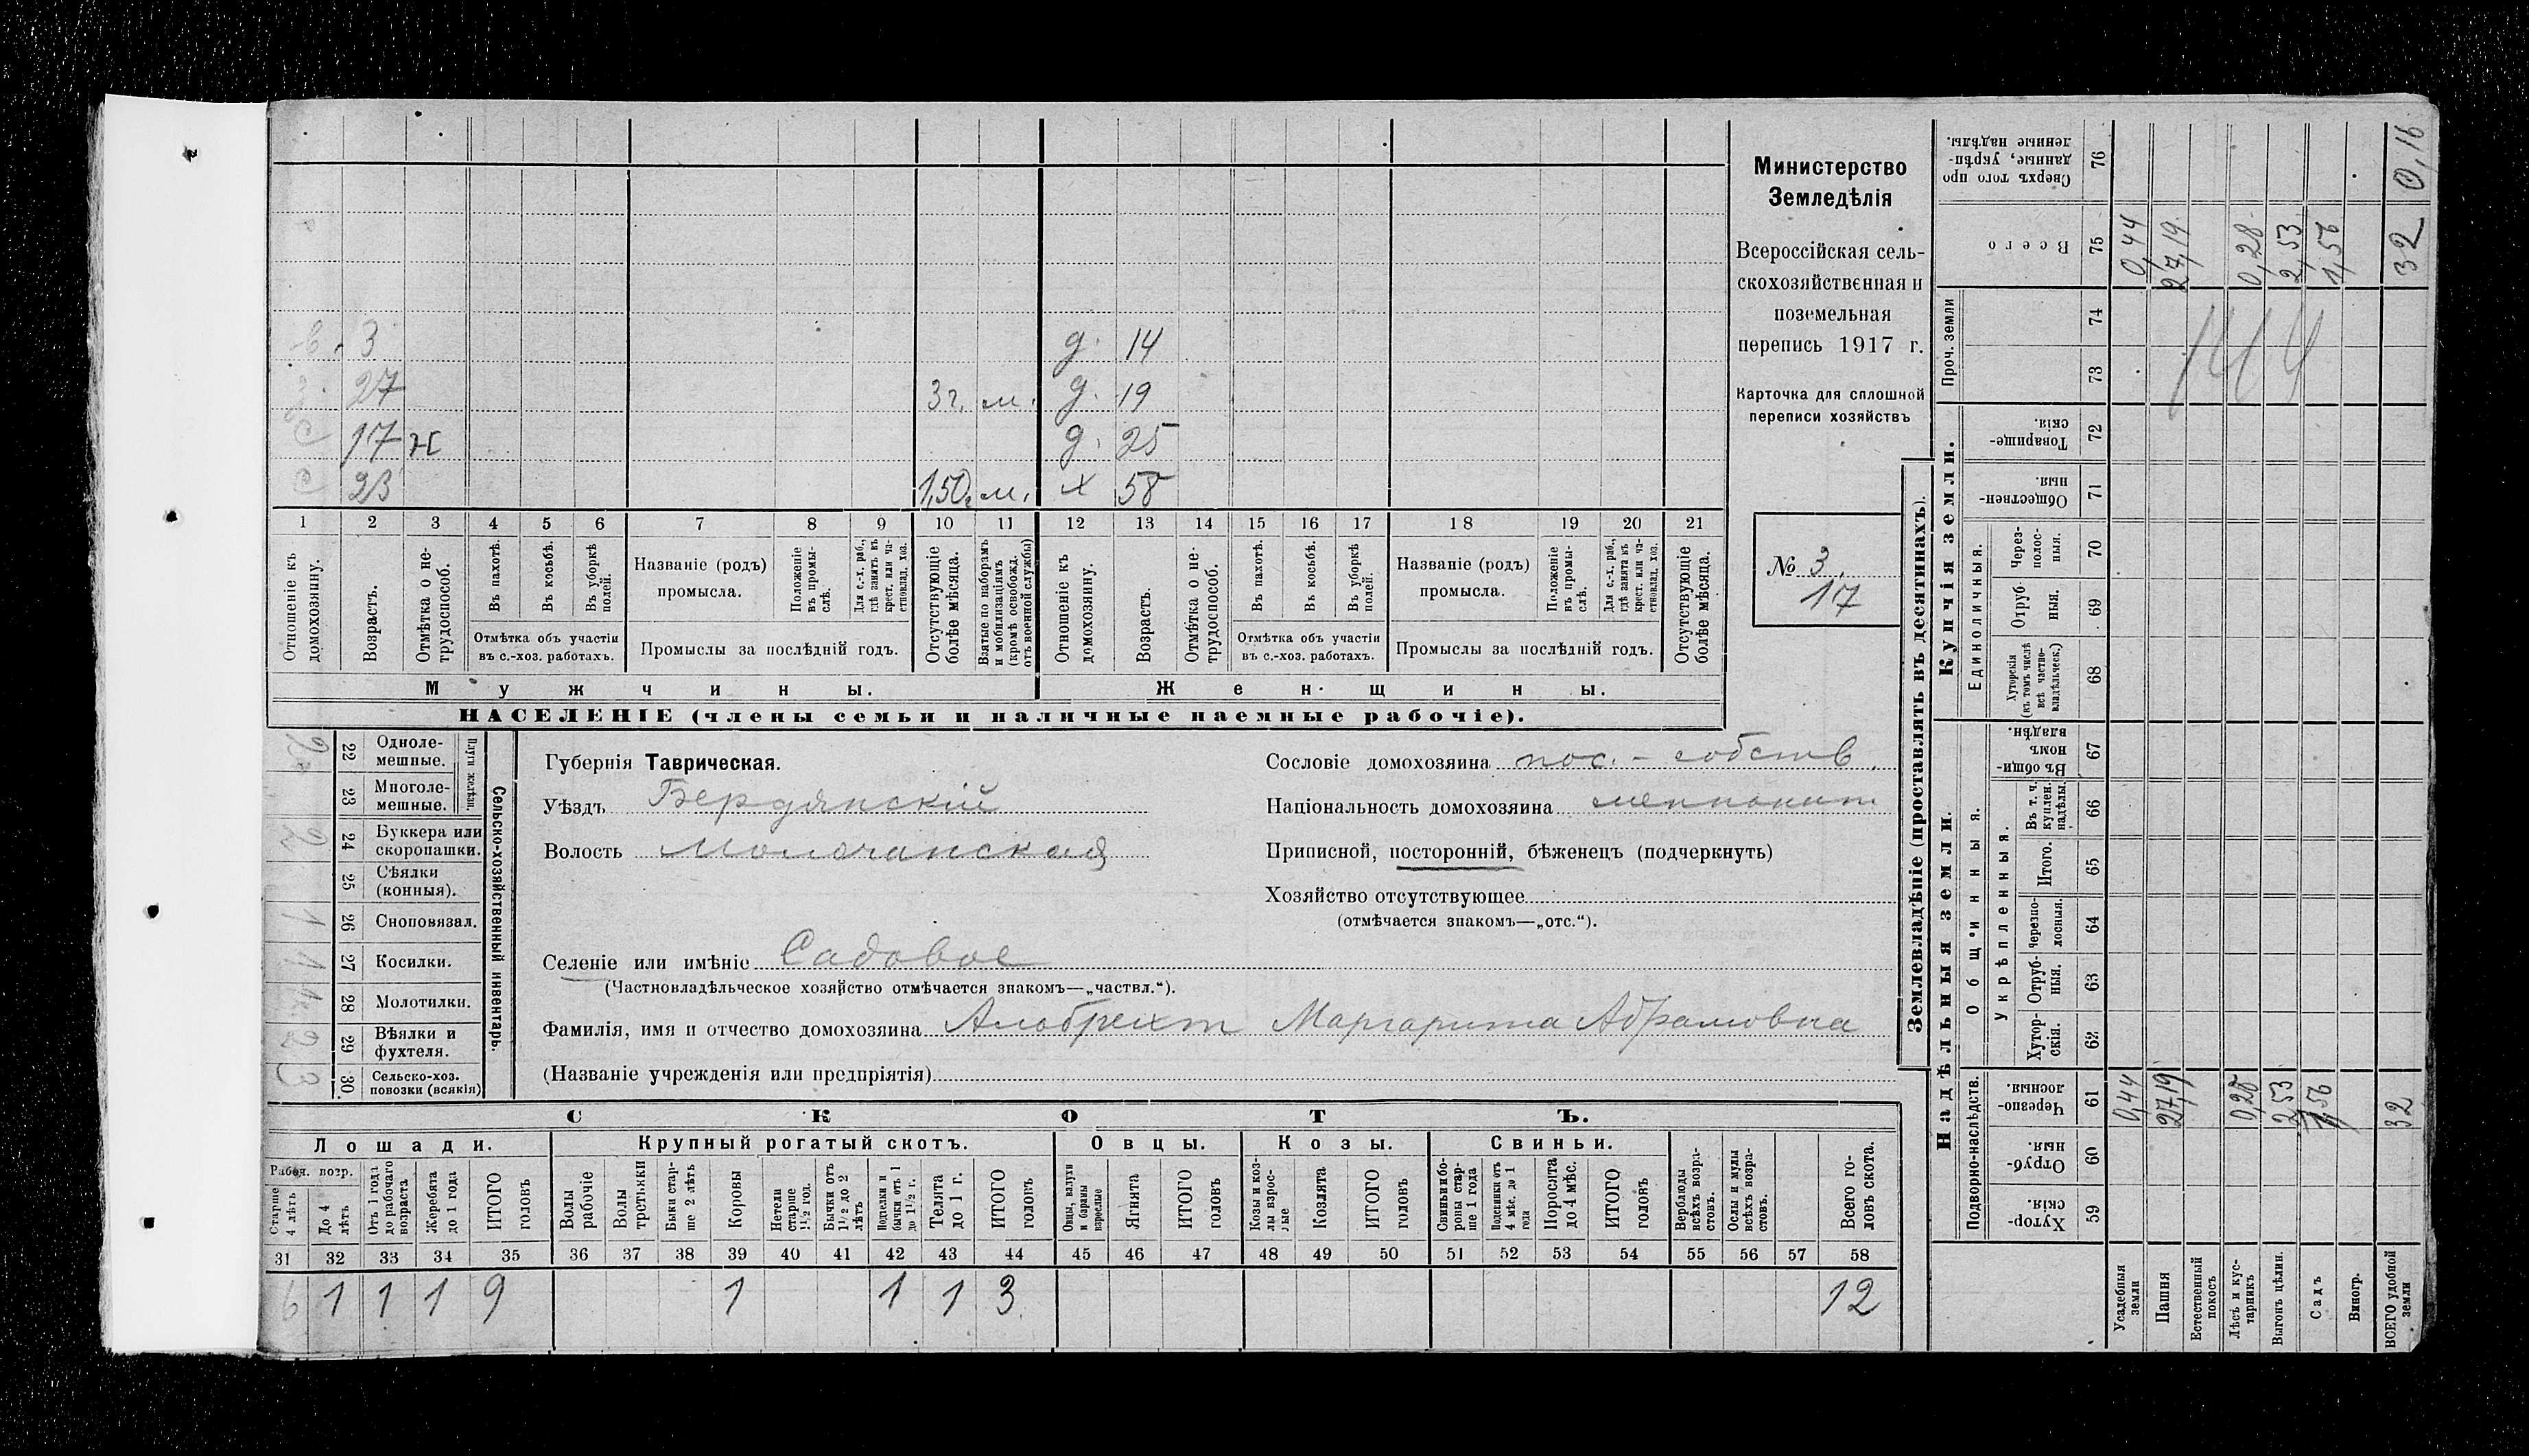 в. 3 д. 14
27 3 г. м. д. 19
с 17 н д. 25
с 23 1,50 г. м. х 58
1 2 3 4 5 6 7 8 9 10 11 12 13 14 15 16 17 18 19 20 21
Отношеніе къ домохозяину.
Возрастъ.
Отмѣтка о не-трудоспособ.
Въ пахотѣ.
Въ косьбѣ.
Въ уборкѣ полей.
Отмѣтка объ участіи въ с.-хоз. работахъ.
Названіе (родъ) промысла.
Положеніе въ промы-слѣ.
Для с.-х. раб., гдѣ занятъ въ крест. или ча-стновлад. хоз.
Промыслы за послѣдній годъ.
Отсутствующіе болѣе мѣсяца.
Взятые по наборамъ и мобилизаціямъ (кромѣ освобожд. отъ военной службы)
Отношеніе къ домохозяину.
Возрастъ.
Отмѣтка о не-трудоспособ.
Въ пахотѣ.
Въ косьбѣ.
Въ уборкѣ полей.
Отмѣтка объ участіи въ с.-хоз. работахъ.
Названіе (родъ) промысла.
Положеніе въ промы-слѣ.
Для с.-х. раб., гдѣ занята въ крест. или ча-стновлад. хоз.
Промыслы за послѣдній годъ.
Отсутствующіе болѣе мѣсяца.
Мужчины. Женщины.
НАСЕЛЕНІЕ (члены семьи и наличные наемные рабочіе).
Министерство
Земледѣлія
Всероссійская сель-
скохозяйственная и
поземельная
перепись 1917 г.
Карточка для сплошной
переписи хозяйствъ
№ 3.
17
22 Одноле-мешные.
23 Многоле-мешные.
Плуги желѣзн.
24 Буккера или скоропашки. 2
25 Сѣялки (конныя).
26 Сноповязал. 1
27 Косилки. 1
28 Молотилки.
29 Вѣялки и фухтеля. 2
30. Сельско-хоз. повозки (всякія) 3
Сельско-хозяйственный инвентарь.
Губернія Таврическая.
Уѣздъ Бердянскій
Волость Молочанская
Селеніе или имѣніе Садовое
(Частновладѣльческое хозяйство отмѣчается знакомъ—„частвл.“).
Фамилія, имя и отчество домохозяина Альбрехт Маргарита Абрамовна
(Названіе учрежденія или предпріятія)
Сословіе домохозяина пос. - собств.
Національность домохозяина меннонит
Приписной, посторонній, бѣженецъ (подчеркнуть)
Хозяйство отсутствующее
(отмѣчается знакомъ—„отс.“).
СКОТЪ.
Лошади. Крупный рогатый скотъ. Овцы. Козы. Свиньи.
Рабоч. возр.
Старше 4 лѣтъ
До 4 лѣтъ
Отъ 1 года до рабочаго возраста
Жеребята до 1 года
ИТОГО головъ
Волы рабочіе
Волы третьяки
Быки стар-ше 2 лѣтъ
Коровы
Нетели старше 1½ год.
Бычки отъ 1½ до 2 лѣтъ
Подтелки и бычки отъ 1 до 1½ г.
Телята до 1 г.
ИТОГО головъ
Овцы, валухи и бараны взрослые
Ягнята
ИТОГО головъ
Козы и коз-лы взрос-лые
Козлята
ИТОГО головъ
Свиньи и бо-ровы стар-ше 1 года
Подсвинки отъ 4 мѣс. до 1 года
Поросята до 4 мѣс.
ИТОГО головъ
Верблюды всѣхъ возра-стовъ.
Ослы и мулы всѣхъ возра-стовъ.
Всего го-ловъ скота.
31 32 33 34 35 36 37 38 39 40 41 42 43 44 45 46 47 48 49 50 51 52 53 54 55 56 57 58
6 1 1 1 9 1 1 1 3 12
Землевладѣніе (проставлять въ десятинахъ).
Надѣльныя земли. Купчія земли.
Подворно-наслѣдств.
Общинныя.
Укрѣпленныя.
Единоличныя.
Проч. земли
Хутор-скія. 59
Отруб-ныя. 60
Черезпо-лосныя. 61
Хутор-скія. 62
Отруб-ныя. 63
Черезпо-лосныя. 64
Итого. 65
Въ т. ч. куплен. надѣлы. 66
Въ общи-номъ владѣн. 67
Хуторскія (въ томъ числѣ всѣ частно-владѣльческ.) 68
Отруб-ныя. 69
Через-полос-ныя. 70
Обществен-ныя. 71
Товарище-скія. 72
73
74
Всего 75
Сверхъ того про-данные, укрѣп-ленные надѣлы. 76
Усадебныя земли 0,44 0,44
Пашня 27,19 27,19
Естественный покосъ
Лѣсъ и кус-тарникъ 0,28 0,28
Выгонъ цѣлин. 2,53 2,53
Садъ 1,56 1,56
Виногр.
ВСЕГО удобной земли 32 32 0,16